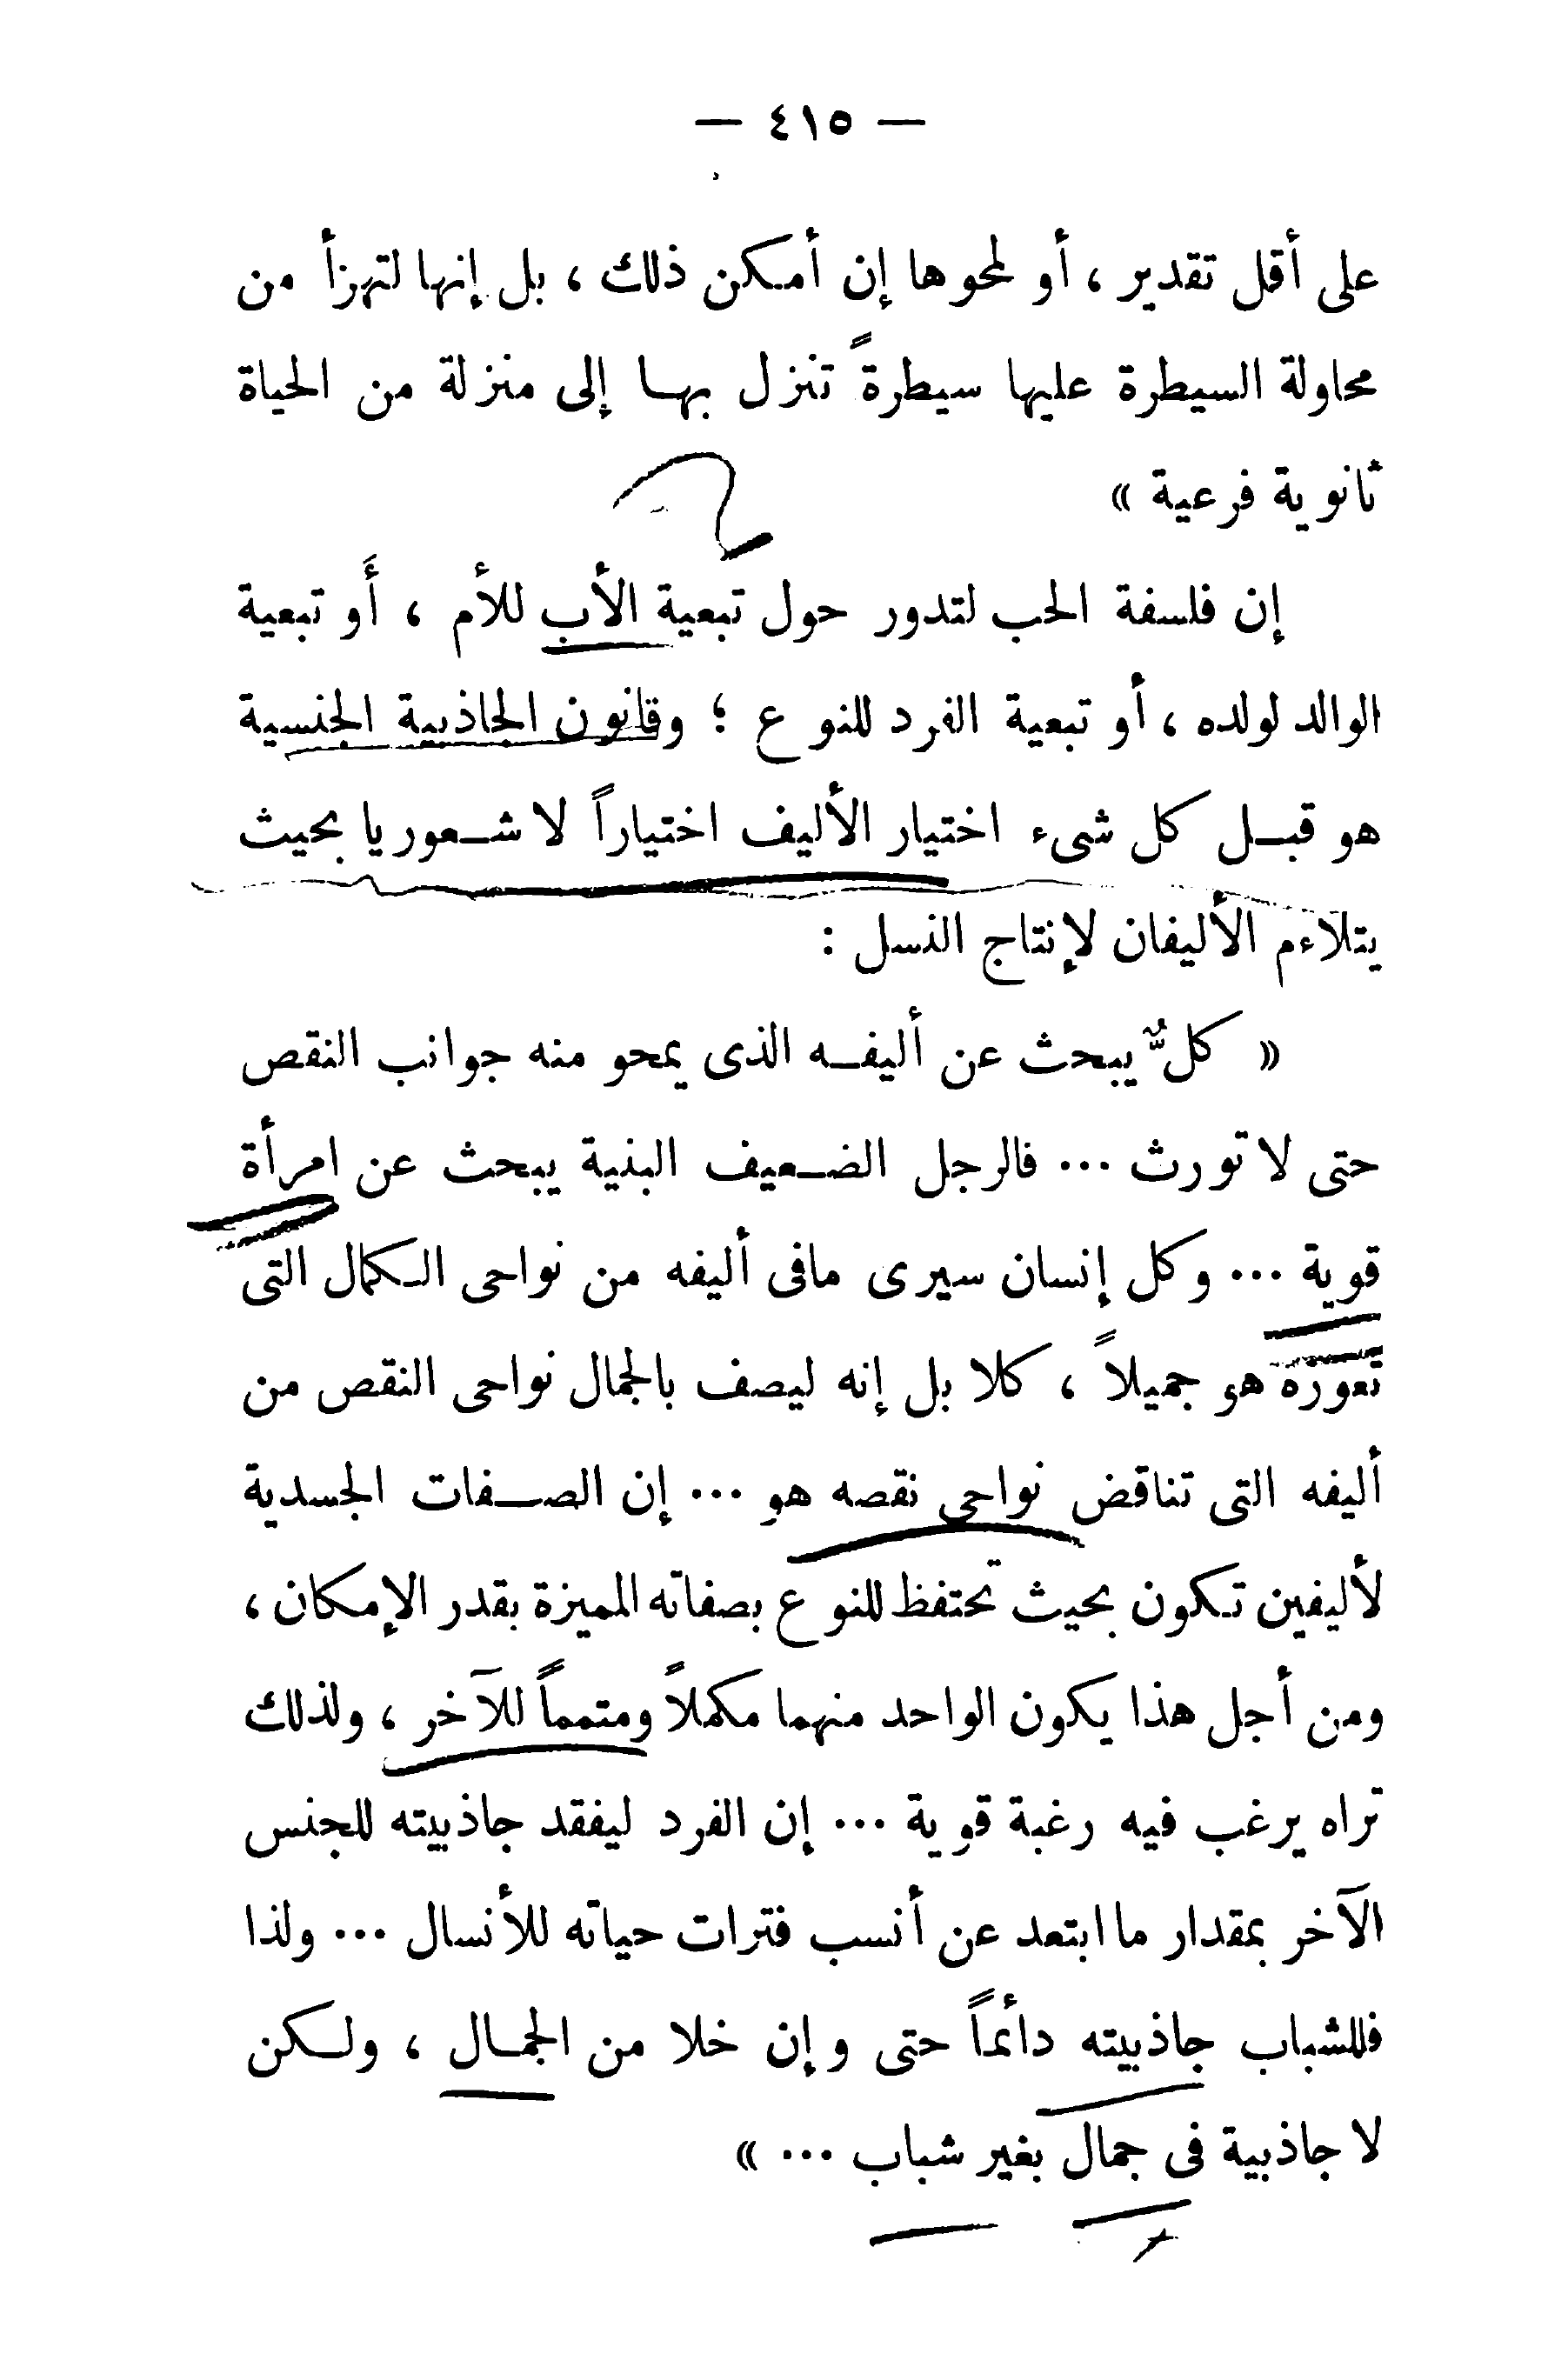 — ٤١٥ —
على أقل تقدير ، أو لمحوها إن أمكن ذلك ، بل إنها لتهزأ من
محاولة السيطرة عليها سيطرةً تنزل بها إلى منزلة من الحياة
ثانوية فرعية »
إن فلسفة الحب لتدور حول تبعية الأب للأم ، أَو تبعية
الوالد لولده ، أو تبعية الفرد للنوع ؛ وقانون الجاذبية الجنسية
هو قبل كل شىء اختيار الأليف اختياراً لا شعوريا بحيث
يتلاءم الأليفان لإنتاج النسل :
« كلٌّ يبحث عن أليفه الذى يمحو منه جوانب النقص
حتى لا تورث ... فالرجل الضعيف البنية يبحث عن امرأة
قوية ... وكل إنسان سيرى مافى أليفه من نواحى الكمال التى
تعوزه هو جميلاً ، كلا بل إنه ليصف بالجمال نواحى النقص من
أليفه التى تناقض نواحى نقصه هو ... إن الصفات الجسدية
لأليفين تكون بحيث تحتفظ للنوع بصفاته المميزة بقدر الإمكان ،
ومن أجل هذا يكون الواحد منهما مكملاً ومتمماً للآخر ، ولذلك
تراه يرغب فيه رغبة قوية ... إن الفرد ليفقد جاذبيته للجنس
الآخر بمقدار ما ابتعد عن أنسب فترات حياته للأنسال ... ولذا
فللشباب جاذبيته دائماً حتى وإن خلا من الجمال ، ولكن
لا جاذبية فى جمال بغير شباب ... »